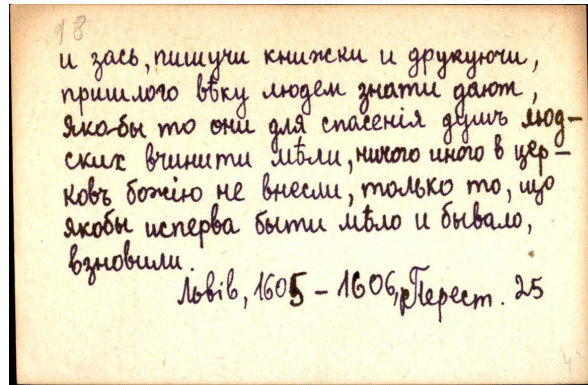 18
и зась, пишучи книжки и друкуючи,
пришлого вѣку людем знати дают,
яко-бы то они для спасенія душъ люд-
ских вчинити мѣли, ничого иного в цер-
ковъ божію не внесли, только то, що
якобы исперва быти мѣло и бывало,
взновили.
Львів, 1605 – 1606, Перест. 25